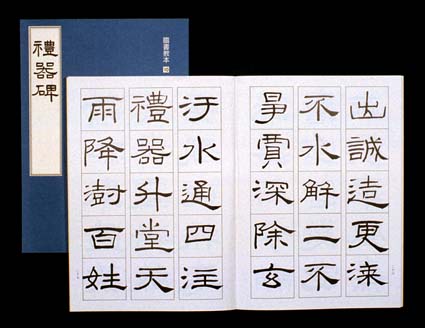 禮器碑
圖書教本
出誠造更漆
不水解工不
爭賈深除玄
汙水通四注
禮器升堂天
雨降澍百姓